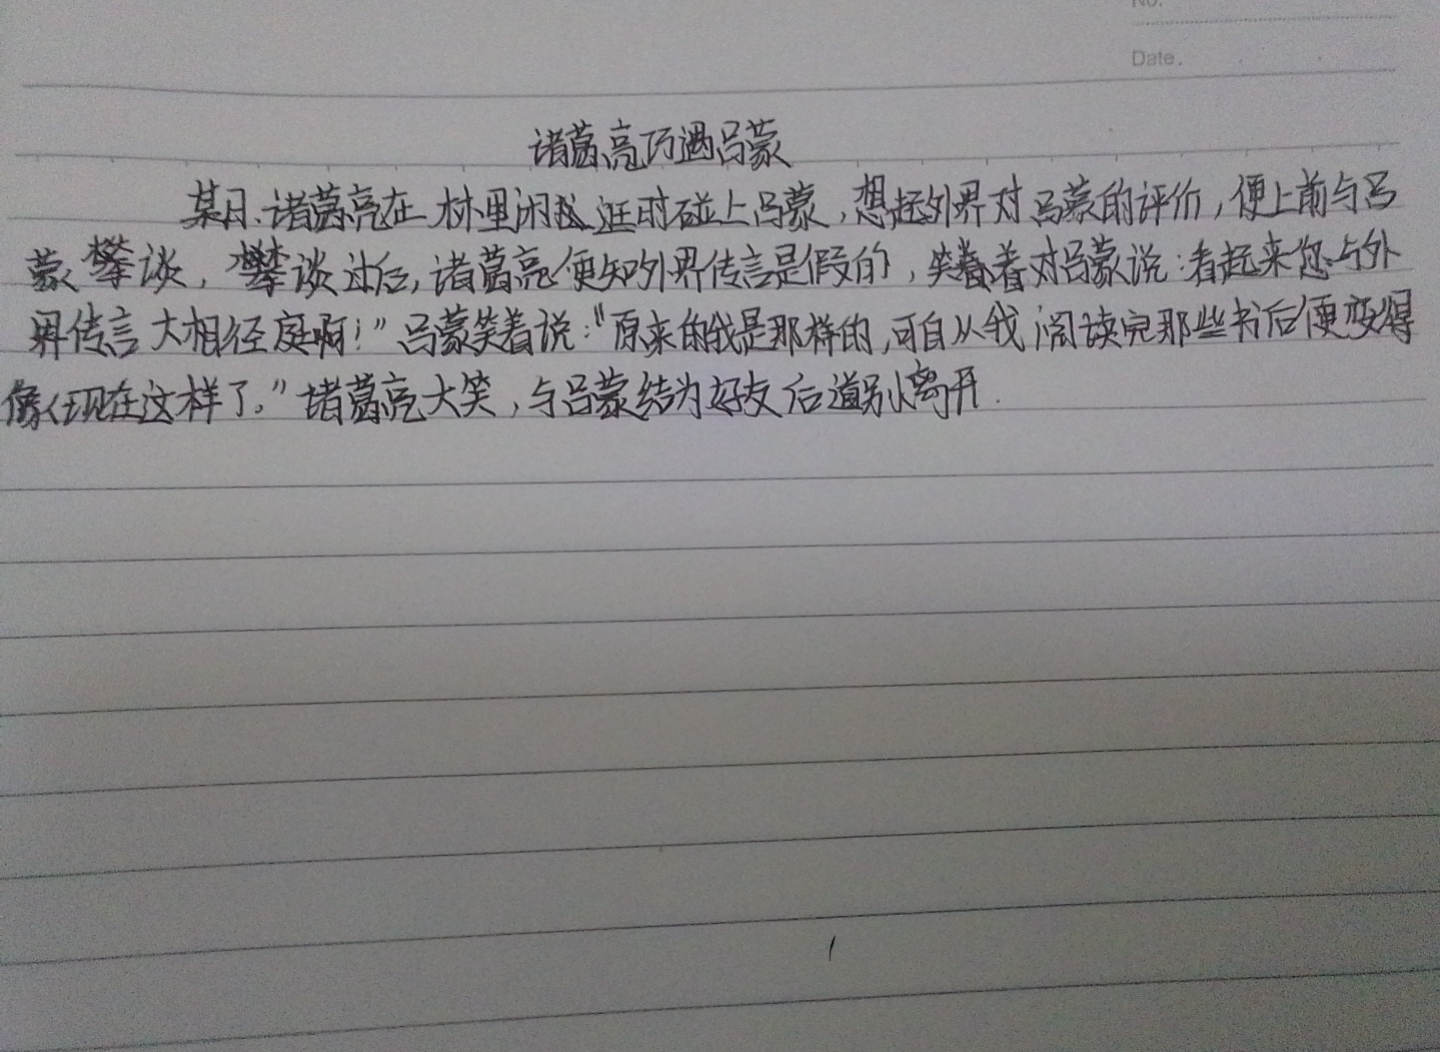 No.
Date.
诸葛亮巧遇吕蒙
某日,诸葛亮在林里闲逛时碰上吕蒙,想起外界对吕蒙的评价,便上前与吕
蒙攀谈,攀谈过后,诸葛亮便知外界传言是假的,笑着对吕蒙说:看起来您与外
界传言大相径庭啊!”吕蒙笑着说:“原来的我是那样的,可自从我阅读完那些书后便变得
像现在这样了。”诸葛亮大笑,与吕蒙结为好友后道别离开.